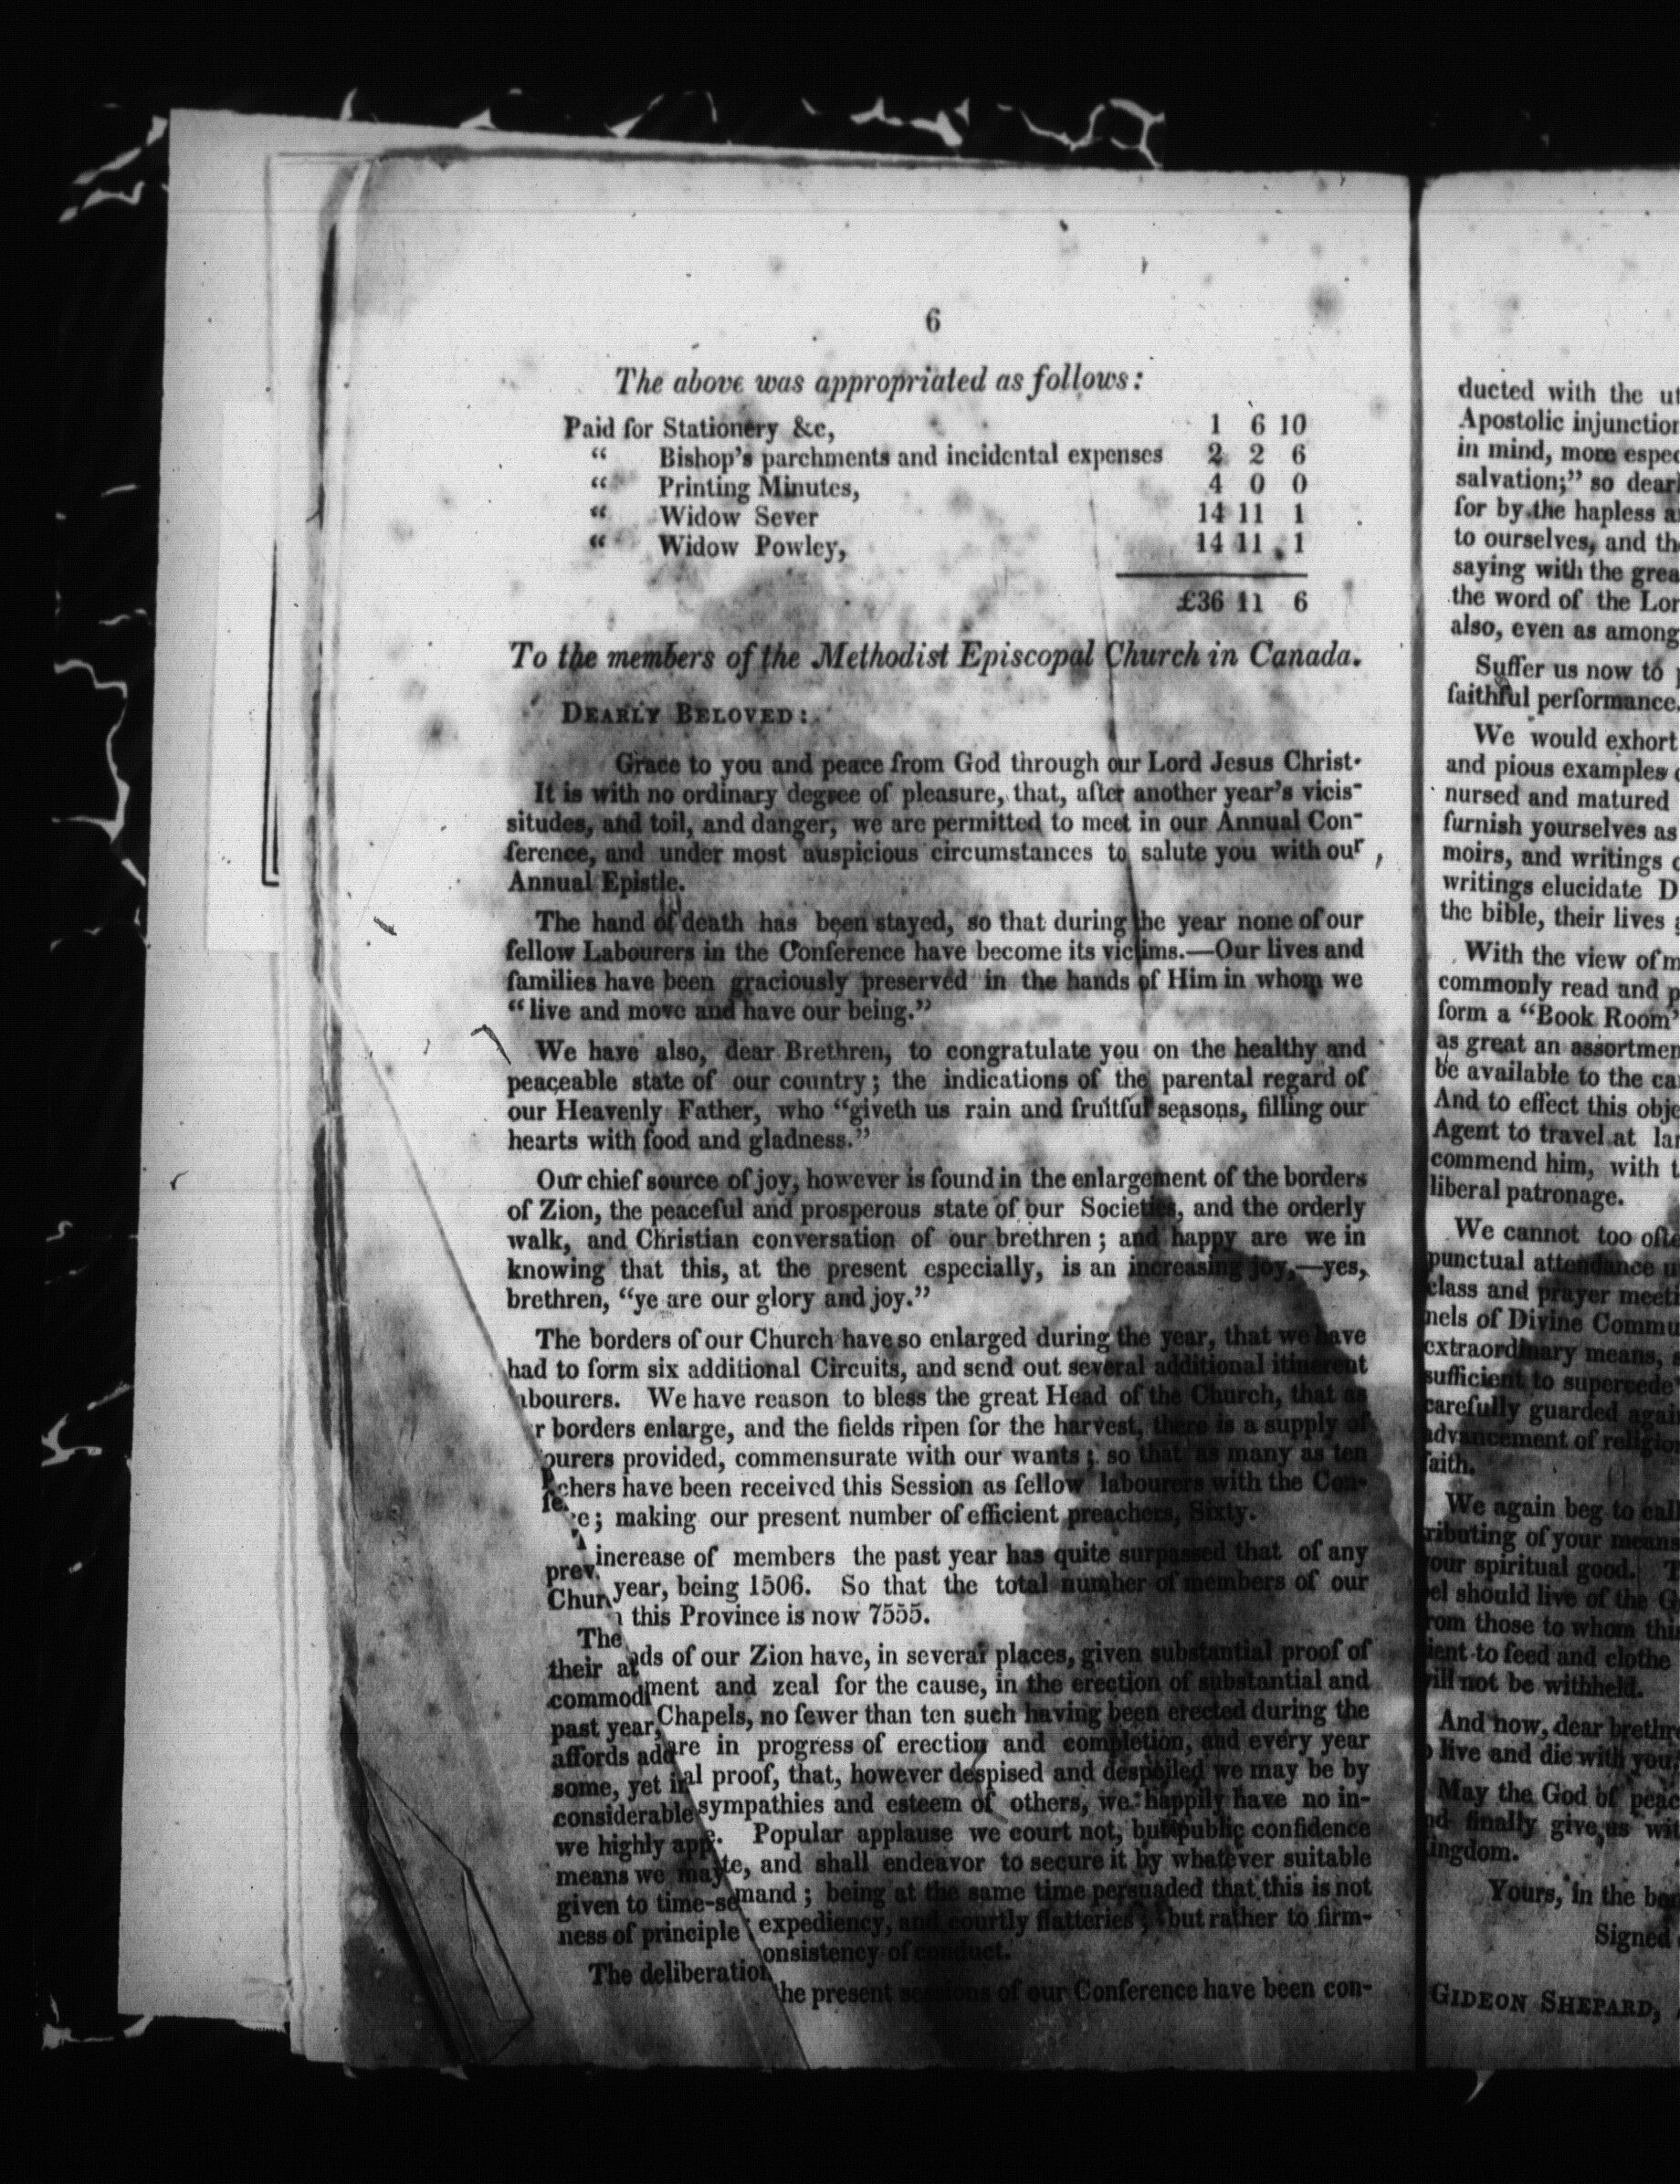 6
The above was appropriated as follows:
Paid for Stationery &c, 1 6 10
“ Bishop's parchments and incidental expenses 2 2 6
“ Printing Minutes, 4 0 0
“ Widow Sever 14 11 1
“ Widow Powley, 14 11 1
£36 11 6
To the members of the Methodist Episcopal Church in Canada.
DEARLY BELOVED:
Grace to you and peace from God through our Lord Jesus Christ.
It is with no ordinary degree of pleasure, that, after another year's vicis-
situdes, and toil, and danger, we are permitted to meet in our Annual Con-
ference, and under most auspicious circumstances to salute you with our
Annual Epistle.
The hand of death has been stayed, so that during the year none of our
fellow Labourers in the Conference have become its victims.—Our lives and
families have been graciously preserved in the hands of Him in whom we
“live and move and have our being.”
We have also, dear Brethren, to congratulate you on the healthy and
peaceable state of our country; the indications of the parental regard of
our Heavenly Father, who “giveth us rain and fruitful seasons, filling our
hearts with food and gladness.”
Our chief source of joy, however is found in the enlargement of the borders
of Zion, the peaceful and prosperous state of our Societies, and the orderly
walk, and Christian conversation of our brethren; and happy are we in
knowing that this, at the present especially, is an increasing joy,—yes,
brethren, “ye are our glory and joy.”
The borders of our Church have so enlarged during the year, that we have
had to form six additional Circuits, and send out several additional itinerent
abourers. We have reason to bless the great Head of the Church, that as
r borders enlarge, and the fields ripen for the harvest, there is a supply of
ourers provided, commensurate with our wants; so that as many as ten
chers have been received this Session as fellow labourers with the Con-
fe e; making our present number of efficient preachers, Sixty.
increase of members the past year has quite surpassed that of any
prev year, being 1506. So that the total number of members of our
Chur this Province is now 7555.
The ds of our Zion have, in several places, given substantial proof of
their at ment and zeal for the cause, in the erection of substantial and
commodi Chapels, no fewer than ten such having been erected during the
past year, are in progress of erection and completion, and every year
affords add al proof, that, however despised and despoiled we may be by
some, yet in sympathies and esteem of others, we happily have no in-
considerable . Popular applause we court not, but public confidence
we highly app te, and shall endeavor to secure it by whatever suitable
means we may mand; being at the same time persuaded that this is not
given to time-se expediency, and courtly flatteries; but rather to firm-
ness of principle onsistency of conduct.
The deliberation the present sessions of our Conference have been con-
ducted with the ut
Apostolic injunction
in mind, more espec
salvation;” so dearl
for by the hapless a
to ourselves, and th
saying with the grea
the word of the Lor
also, even as among
Suffer us now to p
faithful performance.
We would exhort
and pious examples o
nursed and matured
furnish yourselves as
moirs, and writings o
writings elucidate D
the bible, their lives
With the view of m
commonly read and p
form a “Book Room”
as great an assortmen
be available to the ca
And to effect this obje
Agent to travel at lar
commend him, with t
liberal patronage.
We cannot too ofte
punctual attendance u
class and prayer meeti
nels of Divine Commu
extraordinary means, s
sufficient to supercede
carefully guarded again
advancement of religio
faith.
We again beg to call
ributing of your means
your spiritual good. T
pel should live of the G
rom those to whom this
ient to feed and clothe
will not be withheld.
And now, dear brethre
o live and die with you.
May the God of peac
nd finally give us wit
ingdom.
Yours, in the bo
Signed
GIDEON SHEPARD,